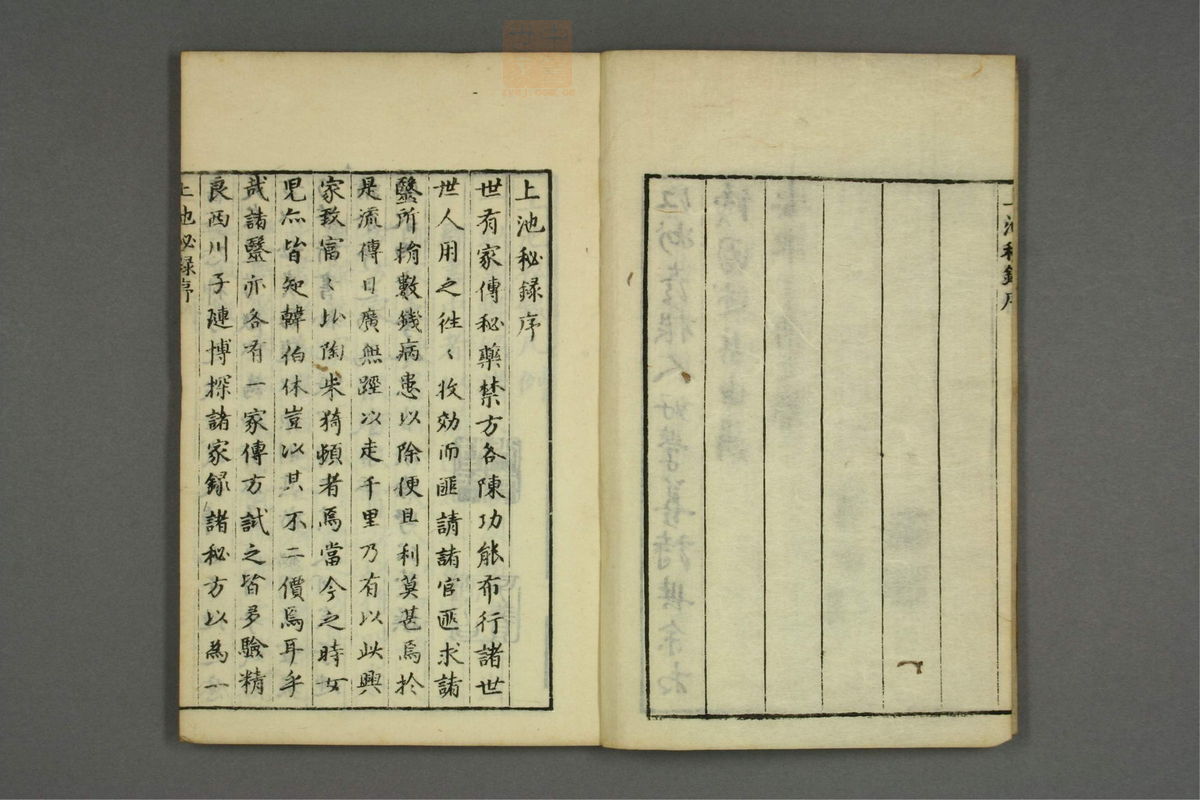 上池秘録序
世有家傳秘藥禁方各陳功能布行諸世
世人用之徃〻收効而匪請諸官匪求諸
毉所捐數錢病患以除便且利莫甚焉於
是流傳日廣無踁以走千里乃有以此興
家致富〻比陶朱猗頓者焉當今之時女
兒亦皆知韓伯休豈以其不二價焉耳乎
哉諸毉亦各有一家傳方試之皆多驗精
良西川子璉博探諸家録諸秘方以為一
上池秘録序
上池秘録序